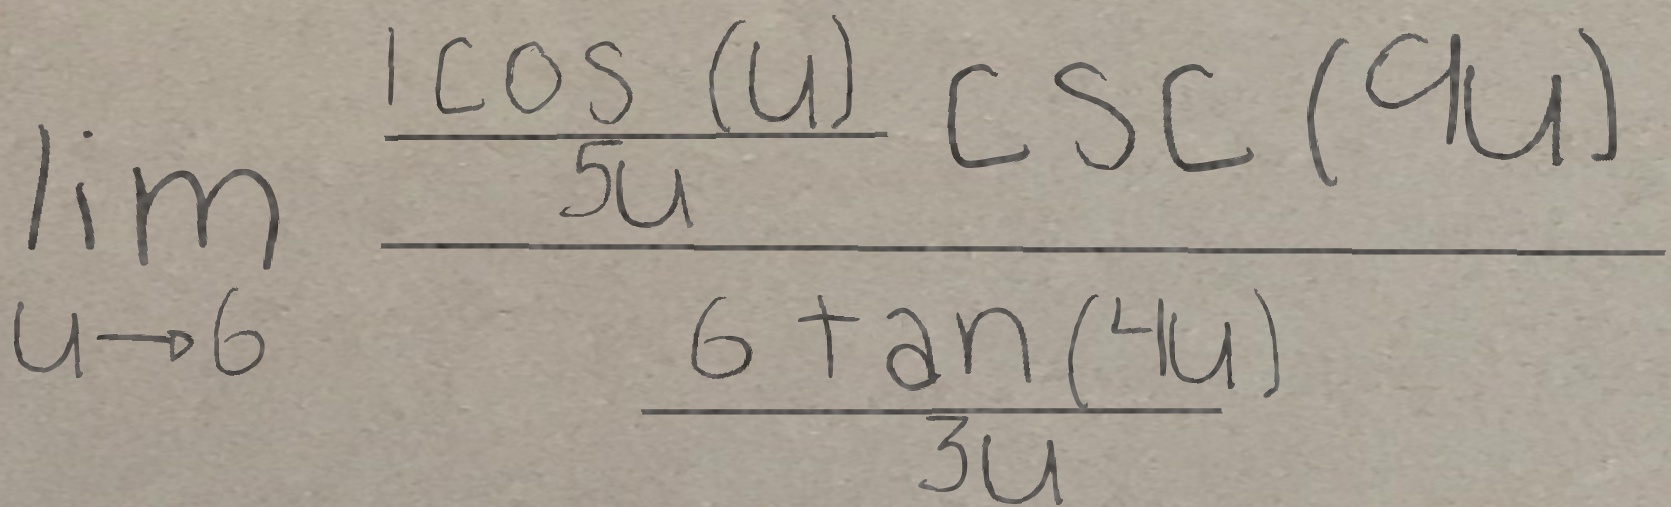 \lim_{u \to 6} \frac{\frac{1 \cos (u)}{5u} \csc (9u)}{\frac{6 \tan (4u)}{3u}}